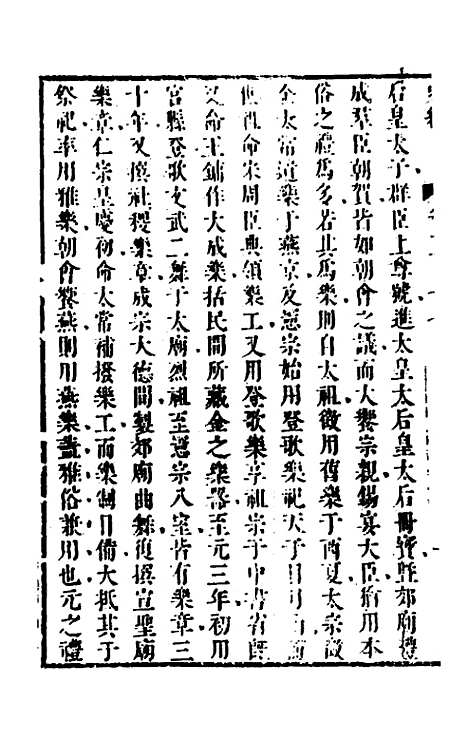 后皇太子群臣上尊號進太皇太后皇太后冊寶暨郊廟禮
成羣臣朝賀皆如朝會之議而大饗宗親錫宴大臣猶用本
俗之禮爲多若其爲樂則自太祖徵用舊樂于西夏太宗徵
金太常遺樂于燕京及憲宗始用登歌樂祀天于日月山而
世祖命宋周臣典領樂工又用登歌樂享祖宗于中書省既
又命王鏞作大成樂括民間所藏金之樂器至元三年初用
宮縣登歌文武二舞于太廟烈祖至憲宗八室皆有樂章三
十年又撰社稷樂章成宗大德間製郊廟曲舞復撰宣聖廟
樂章仁宗皇慶初命太常補撥樂工而樂制日備大抵其于
祭祀率用雅樂朝會饗燕則用燕樂蓋雅俗兼用也元之禮